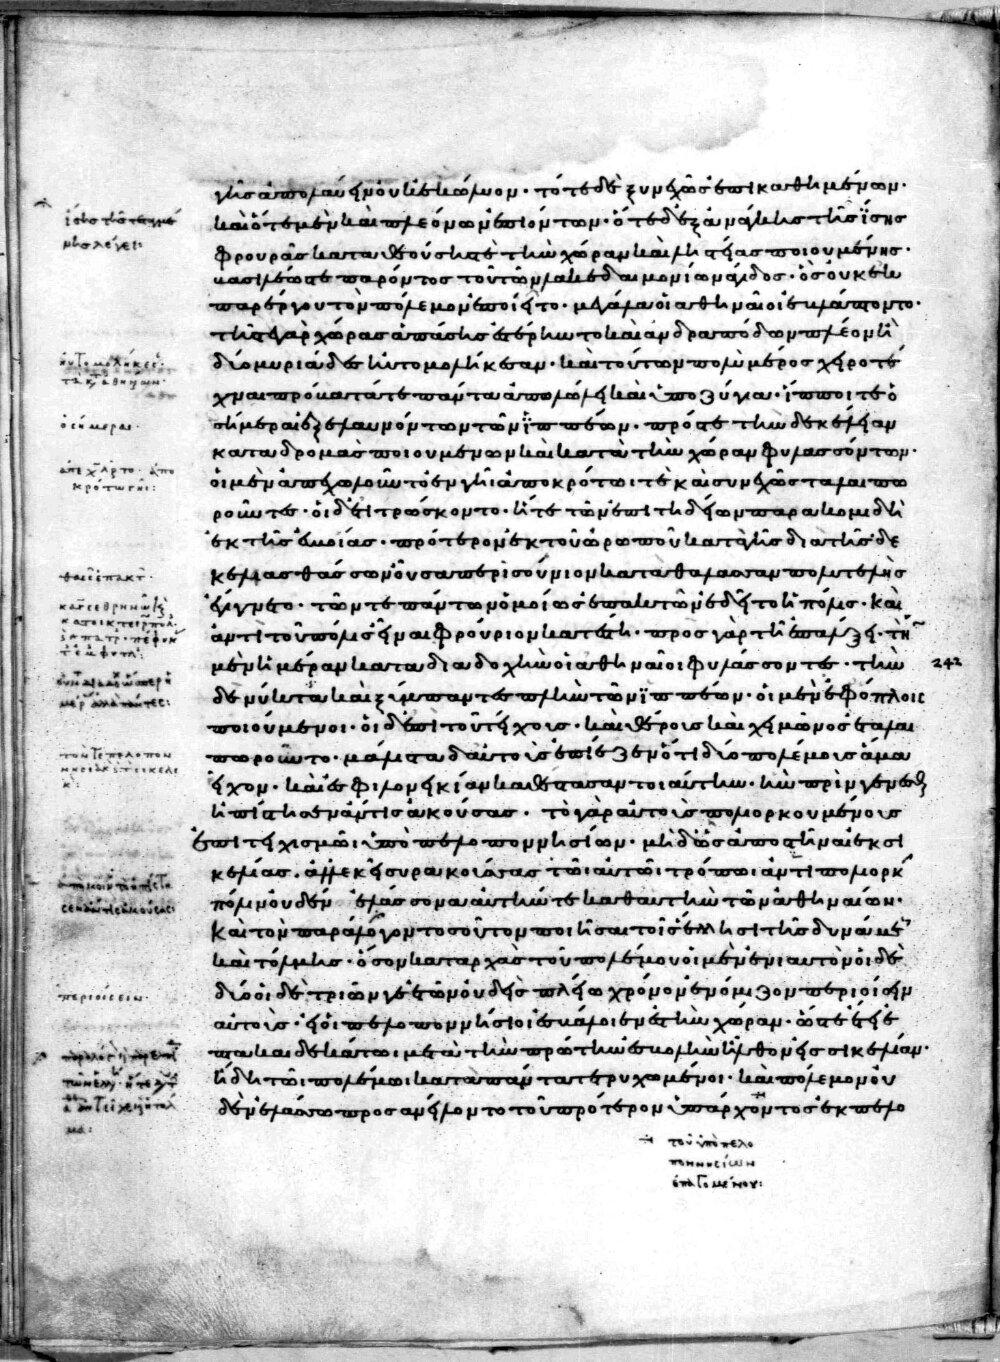 γῆς ἀπολαύειν οὐκ ἐκώλυον· τότε δὲ ξυνεχῶς ἐπικαθημένων·
καὶ ὁτὲ μὲν καὶ πλεόνων ἐπιόντων· ὁτὲ δ' ἐξ ἀνάγκης τῆς ἴσης
φρουρᾶς καταθεούσης τε τὴν χώραν καὶ ληστείας ποιουμένης·
βασιλέως τε παρόντος τοῦ τῶν λακεδαιμονίων ἄγιδος· ὃς οὐκ ἐκ
παρέργου τὸν πόλεμον ἐποιεῖτο· μεγάλα οἱ ἀθηναῖοι ἐβλάπτοντο·
τῆς τε γὰρ χώρας ἁπάσης ἐστέρηντο καὶ ἀνδραπόδων πλέον ἢ
δύο μυριάδες ηὐτομολήκεσαν· καὶ τούτων πολὺ μέρος χειροτέ
χναι πρόβατά τε πάντα ἀπωλώλει καὶ ὑποζύγια· ἵπποι τε ὁ
σημέραι ἐξελαυνόντων τῶν ἱππέων· πρός τε τὴν δεκέλειαν
καταδρομὰς ποιουμένων καὶ κατὰ τὴν χώραν φυλασσόντων·
οἱ μὲν ἀπεχωλοῦντο ἐν γῆι ἀποκρότωι τε καὶ συνεχῶς ταλαιπω
ροῦντες· οἱ δ' ἐτιτρώσκοντο· ἥ τε τῶν ἐπιτηδείων παρακομιδὴ
ἐκ τῆς εὐβοίας· πρότερον ἐκ τοῦ ὠρωποῦ κατὰ γῆς διὰ τῆς δε
κελείας θάσσων οὖσα περὶ σούνιον κατὰ θάλασσαν πολυτελὴς
ἐγίγνετο· τῶν τε πάντων ὁμοίως ἐπακτῶν ἐδεῖτο ἡ πόλις· καὶ
ἀντὶ τοῦ πόλις εἶναι φρούριον κατέστη· πρὸς γὰρ τῆι ἐπάλξει· τὴν
μὲν ἡμέραν κατὰ διαδοχὴν οἱ ἀθηναῖοι φυλάσσοντες· τὴν
242
δὲ νύκτα καὶ ξύμπαντες πλὴν τῶν ἱππέων· οἱ μὲν ἐφ' ὅπλοις
ποιούμενοι· οἱ δ' ἐπὶ τοῦ τείχους· καὶ θέρους καὶ χειμῶνος ἐταλαι
πωροῦντο· μάλιστα δ' αὐτοὺς ἐπίεζεν ὅτι δύο πολέμους ἅμα
εἶχον· καὶ ἐς φιλονεικίαν καθέστασαν τοιαύτην· ἣν πρὶν γενέσθ
ἠπίστησεν ἄν τις ἀκούσας· τὸ γὰρ αὐτοὺς πολιορκουμένους
ἐπιτειχισμῶι ὑπὸ πελοποννησίων· μηδ' ὣς ἀποστῆναι ἐκ σι
κελίας. ἀλλ' ἐκεῖ συρακούσας τῶι αὐτῶι τρόπωι ἀντιπολιορκ
πόλιν οὐδὲν ἐλάσσονα αὐτήν τε καθ' αὑτὴν τῶν ἀθηναίων·
καὶ τὸν παράλογον τοσοῦτον ποιῆσαι τοῖς ἕλλησι τῆς δυνάμε
καὶ τόλμης· ὅσον κατ' ἀρχὰς τοῦ πολέμου οἱ μὲν ἐνιαυτὸν οἱ δὲ
δύο οἱ δὲ τριῶν γε ἐτῶν οὐδεὶς πλείω χρόνον ἐνόμιζον περιοίσειν
αὐτοὺς· εἰ οἱ πελοποννήσιοι ἐσβάλοιεν ἐς τὴν χώραν· ὥστε ἔτει ἑ
πτακαιδεκάτωι μετὰ τὴν πρώτην ἐσβολὴν ἦλθον ἐς σικελίαν·
ἤδη τῶι πολέμωι κατὰ πάντα τετρυχωμένοι· καὶ πόλεμον οὐ
δὲν ἐλάσσω προσανείλοντο τοῦ πρότερον ὑπάρχοντος ἐκ πελο
τοῦ ὑπὸ πελο
ποννησίων
ἐπαγομένου: